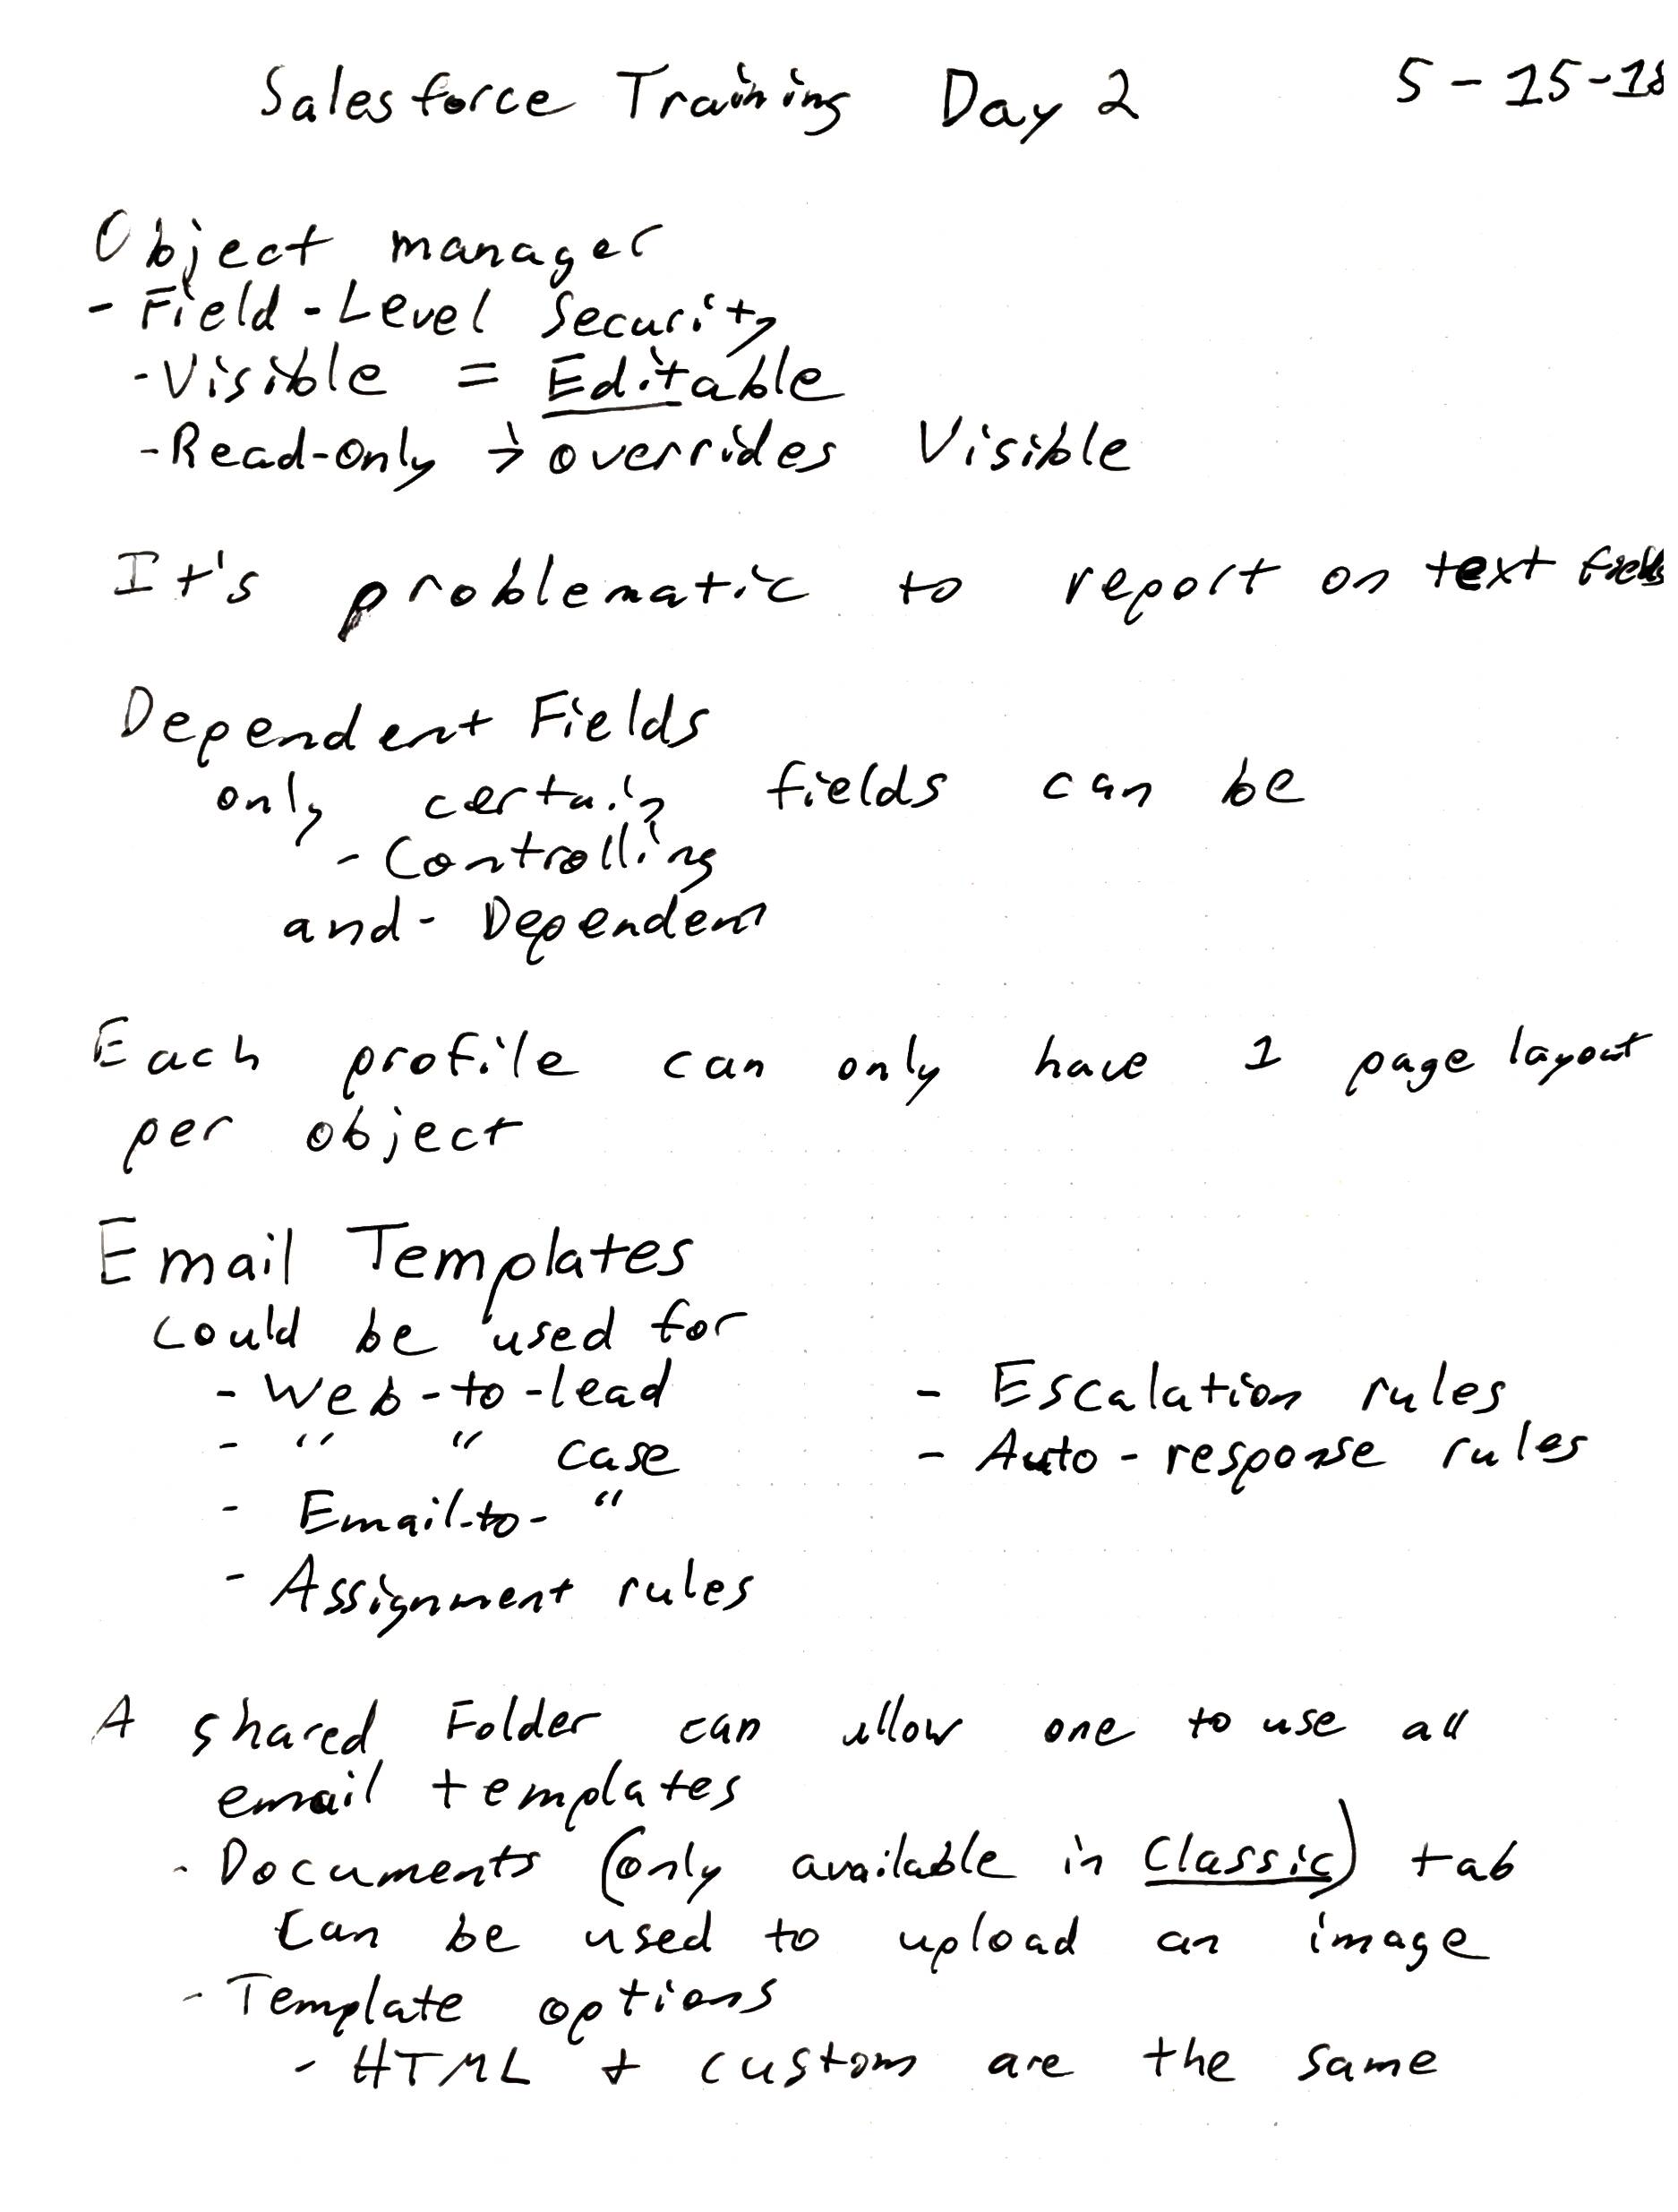 Salesforce Training Day 2 5-15-18
Object manager
- Field-Level Security
-Visible = Editable
-Read-only → overrides Visible
It's problematic to report on text fields
Dependent Fields
only certain fields can be
- Controlling
and - Dependent
Each profile can only have 1 page layout
per object
Email Templates
could be used for
- Web-to-lead - Escalation rules
- " " case - Auto-response rules
- Email-to- "
- Assignment rules
A shared Folder can allow one to use all
email templates
- Documents (only available in Classic) tab
can be used to upload an image
- Template options
- HTML + custom are the same